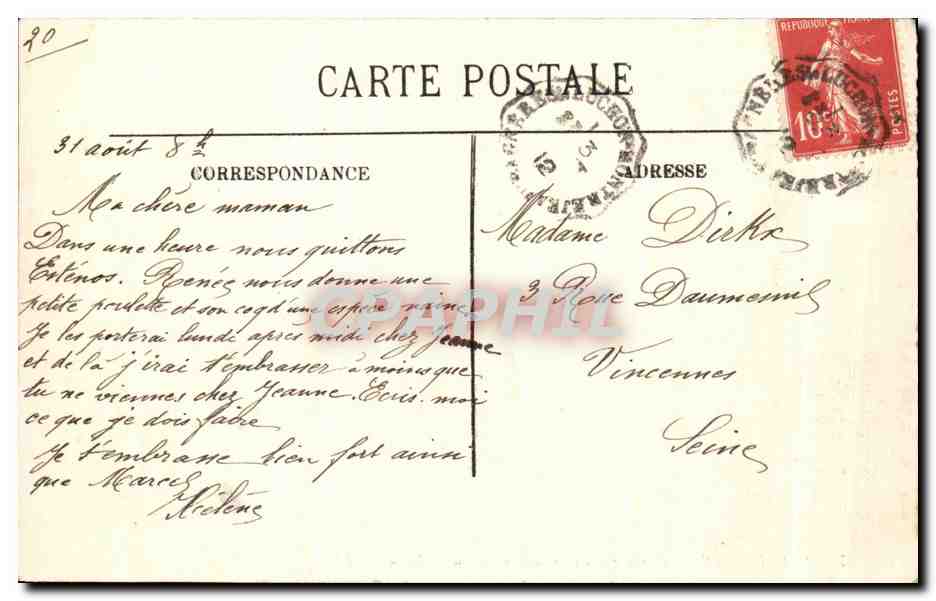 20
CARTE POSTALE
REPUBLIQUE FRANÇAISE
10
POSTES
BAGNERES-DE-LUCHON A MONTREJEAU
12
31 août 8h
CORRESPONDANCE
ADRESSE
Ma chère maman
Dans une heure nous quittons
Esténos. Renée nous donne une
petite poulette et son coq d'une espèce naine
Je les porterai lundi après midi chez Jeanne
et de là j'irai t'embrasser à moins que
tu ne viennes chez Jeanne. Ecris-moi
ce que je dois faire
Je t'embrasse bien fort ainsi
que Marcel
Hélène
Madame Dirkx
3 Rue Daumesnil
Vincennes
Seine
CPAPHIL